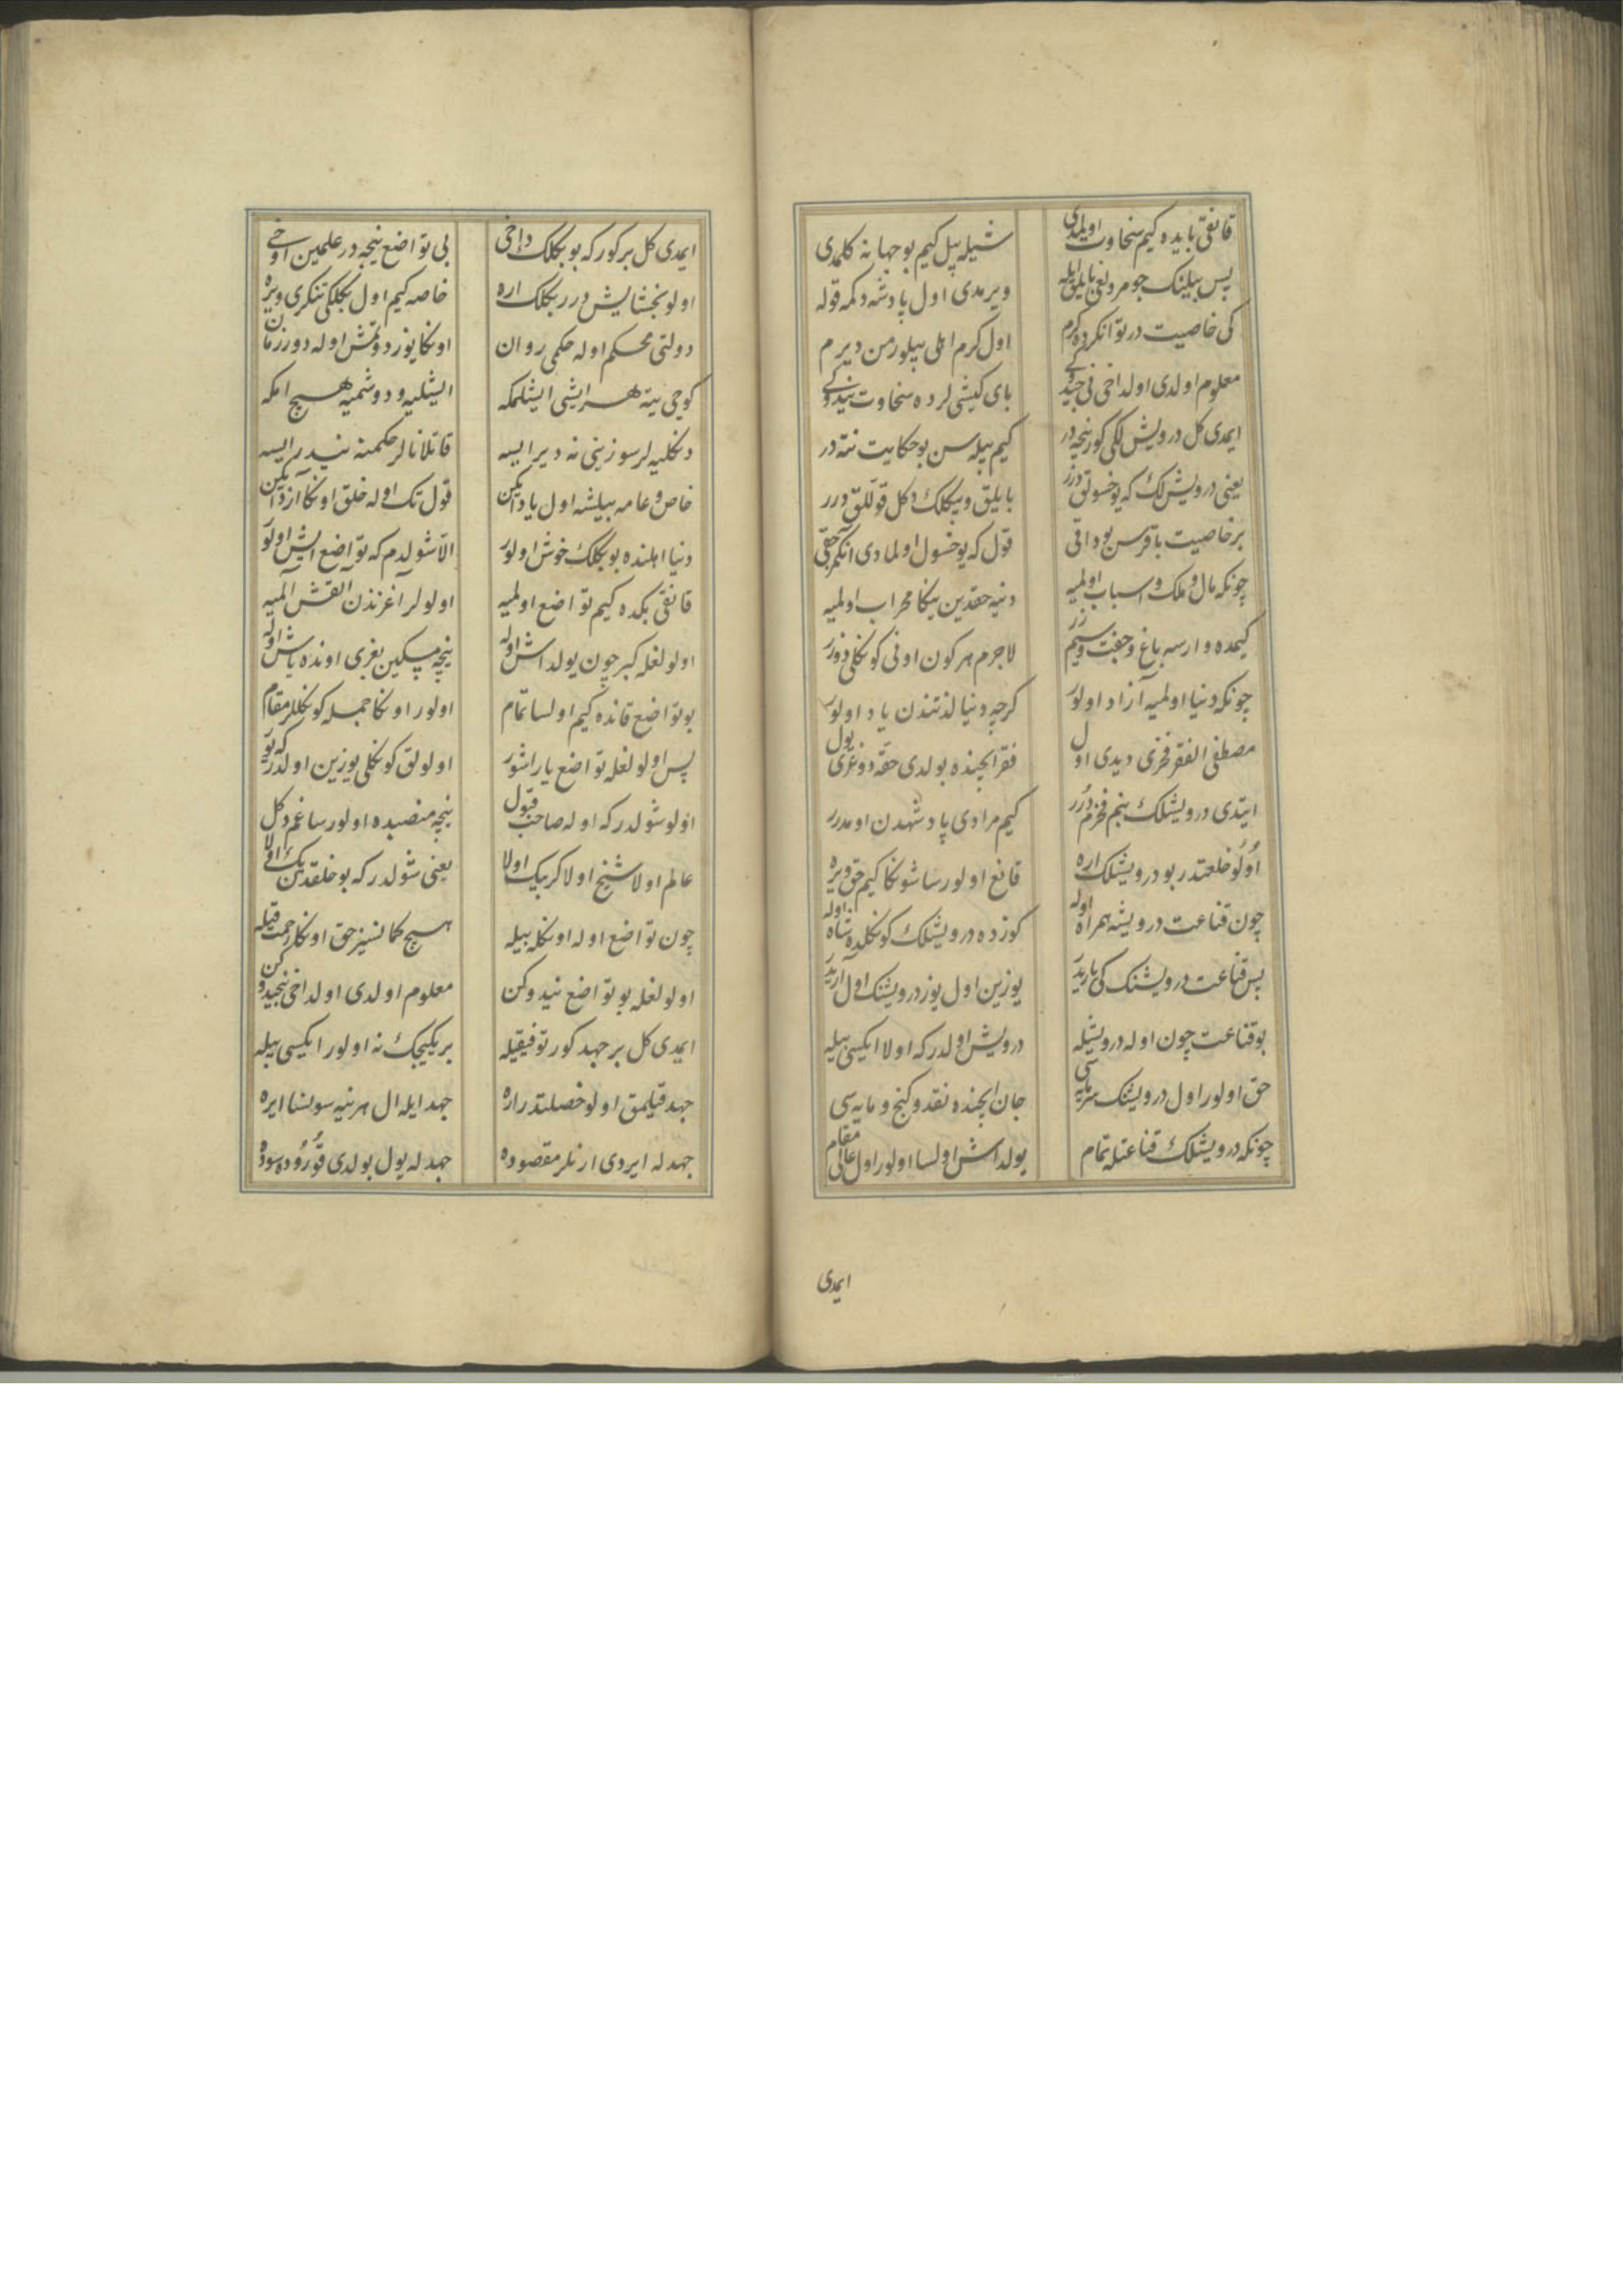 قانقی بایده کیم سخاوت اولمدی شیله بیل کیم بو جهانه کلمدی
پس بیلینک جومردلغی بایلق ایله ویرمدی اول پادشه دکمه قوله
کی خاصیت در توانکرده کرم اول کرم اهلی بیلورمن دیرم
معلوم اولدی اولداخی بای کیشی لرده سخاوت نیدوکی
ایمدی کل درویش لکی کور نیجه در کیم بیله سن بو حکایت نته در
یعنی درویش لک که یوخسوللق درر بایلق وبیکلک دکل قوللق درر
بر خاصیت باقرسن بوداقی قول که یوخسول اولمادی
چونکه مال و ملک و اسباب اولمیه دنیه حقدین یکا محراب اولمیه
کیمده وارسه باغ و جفت و سیم زر لاجرم هر کون اونی کونکلی
چونکه دنیا اولمیه آزاد اولور کرچه دنیا لذتندن یاد اولور
مصطفی الفقر فخری دیدی اول فقر ایچنده بولدی حقه دوغری یول
ایتدی درویشلک بنم فخرم درر کیم مرادی پادشهدن اومدرر
اولو خلعتدر بو درویشلک اره قانع اولورسا شونکا کیم حق ویره
چون قناعت درویشه همراه اوله کوزده درویشلک کونکلده شاه اوله
پس قناعت درویشنک کی یاریدر یوزین اول یوز درویشنک اول اریدر
بو قناعت چون اوله درویشیله درویش اولدر که اولا ایکیسی بیله
حق اولور اول درویشنک سرمایه سی جان ایچنده نقد و کنج و مایه سی
چونکه درویشلک قناعتله تمام یولداش اولسا اولور اول عالی مقام
ایمدی
ایمدی کل بر کور که بو بکلک داخی بی تواضع نیجه در علمین اوخی
اولو بخشایش درر بکلک اره خاصه کیم اول بکلکی تنکری ویره
دولتی محکم اوله حکمی روان اونکا یوز دوتمش اوله دور زمان
کوچی یته هر ایشی ایشلمکه ایشلیه و دوشمیه هیچ امکه
دنکلیه لر سوزینی نه دیر ایسه قاتلانالر حکمنه نیدر ایسه
خاص و عامه بیلیشه اول یاد ایکن قول تک اوله خلق اونکا آزاد ایکن
دنیا اهلنده بو بکلک خوش اولور الا شولدم که تواضع ایش اولور
قانقی بکده کیم تواضع اولمیه اولولر اغزندن القش المیه
اولولغله کبر چون یولداش اوله نیچه مسکین بغری اونده باش اوله
بو تواضع قانده کیم اولسا تمام اولور اونکا جمله کونکللر مقام
پس اولولغله تواضع یاراشور اولولق کونکلی یوزین اولدر
اولو شولدر که اوله صاحب قبول نیچه منصبده اولورسا غم دکل
عالم اولا شیخ اولا کر بیک اولا یعنی شولدر که بو خلقدین
چون تواضع اوله اونکله بیله هیچ کمانسیز حق اونکا رحمت قیله
اولولغله بو تواضع نیدوکن معلوم اولدی اولداخی نیجیدوکن
ایمدی کل بر جهد کور توفیقیله بریکیجک نه اولور ایکیسی بیله
جهد قیلمق اولو خصلتدر اره جهد ایله ال هر نیه سونسا ایره
جهدله ایردی ارنلر مقصوده جهدله یول بولدی